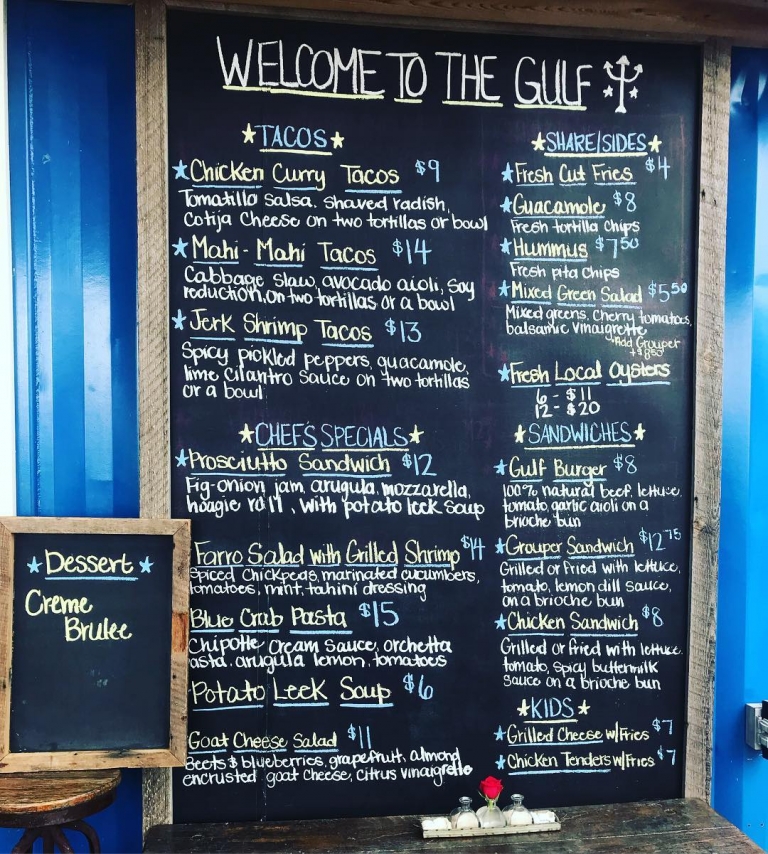 WELCOME TO THE GULF
TACOS
Chicken Curry Tacos $9
Tomatillo salsa, shaved radish,
Cotija Cheese on two tortillas or bowl
Mahi-Mahi Tacos $14
Cabbage slaw, avocado aioli, soy
reduction, on two tortillas or a bowl
Jerk Shrimp Tacos $13
Spicy pickled peppers, guacamole,
lime cilantro sauce on two tortillas
or a bowl
CHEF'S SPECIALS
Prosciutto Sandwich $12
Fig-onion jam, arugula, mozzarella,
hoagie roll, with potato leek soup
Farro Salad with Grilled Shrimp $14
Spiced Chickpeas, marinated cucumbers,
tomatoes, mint, tahini dressing
Blue Crab Pasta $15
Chipotle cream sauce, orchetta
asta, arugula lemon, tomatoes
Potato Leek Soup $6
Goat Cheese Salad $11
Beets & blueberries, grapefruit, almond
encrusted goat cheese, citrus vinaigrette
SHARE/SIDES
Fresh Cut Fries $4
Guacamole $8
Fresh tortilla chips
Hummus $7.50
Fresh pita chips
Mixed Green Salad $5.50
Mixed greens, cherry tomatoes,
balsamic vinaigrette
*Add Grouper
+$8.50
Fresh Local Oysters
6 - $11
12 - $20
SANDWICHES
Gulf Burger $8
100% natural beef, lettuce,
tomato, garlic aioli on a
brioche bun
Grouper Sandwich $12.75
Grilled or fried with lettuce,
tomato, lemon dill sauce,
on a brioche bun
Chicken Sandwich $8
Grilled or fried with lettuce,
tomato, spicy buttermilk
sauce on a brioche bun
KIDS
Grilled Cheese w/Fries $7
Chicken Tenders w/Fries $7
Dessert
Creme
Brulee